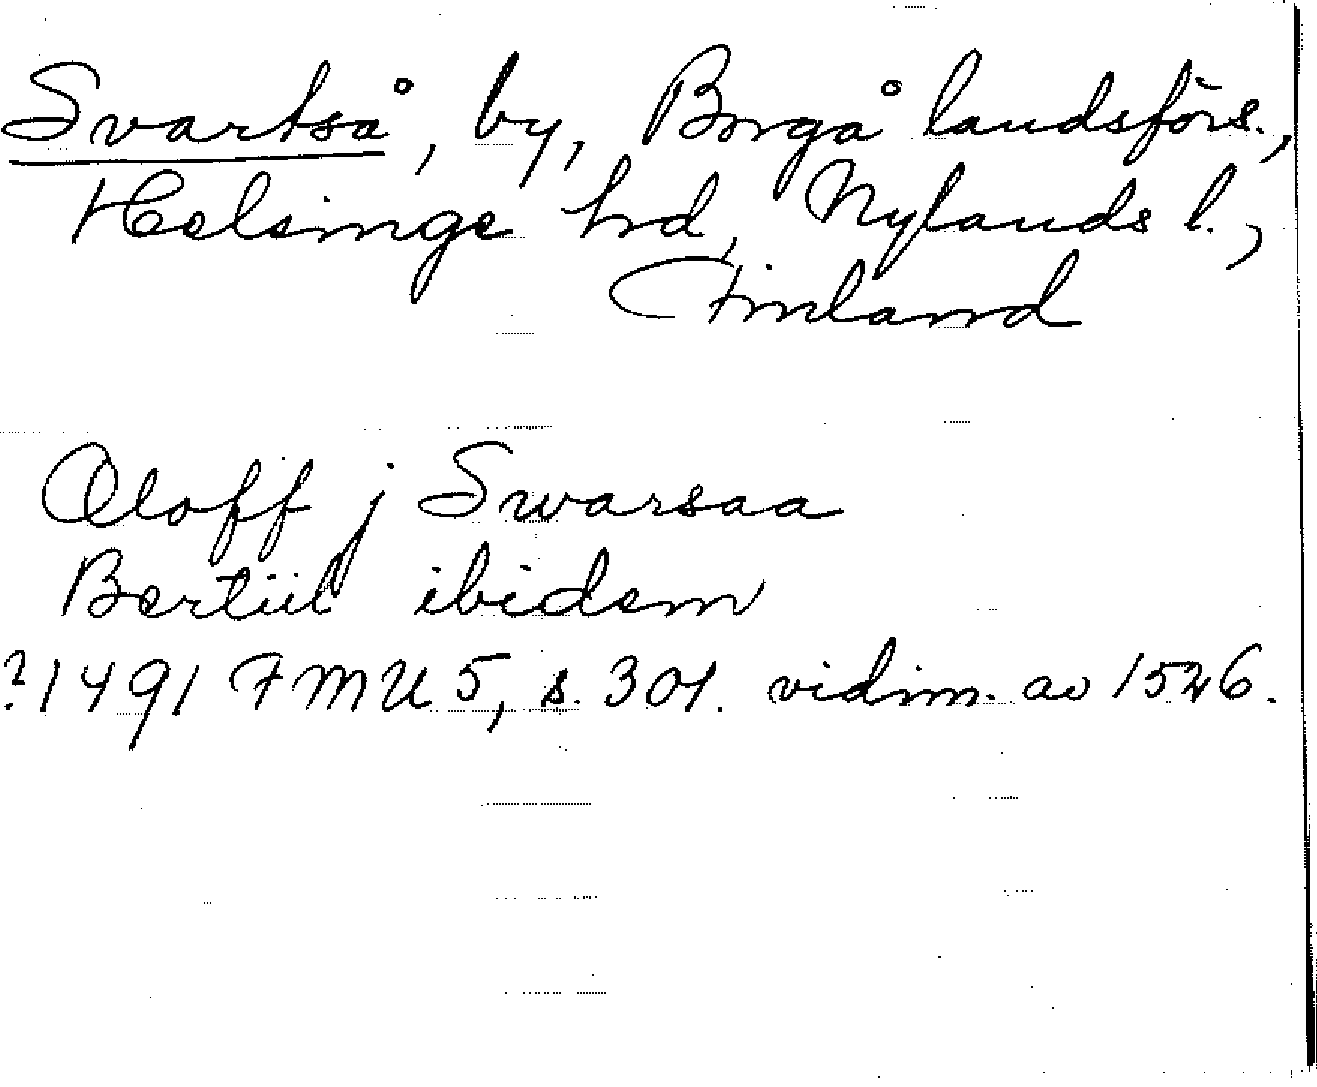 Svartså, by, Borgå landsförs.,
Helsinge hd, Nylands l.,
Finland
Oloff j Swarsaa
Bertiil ibidem
?1491 FMU 5, s. 301. vidim. av 1546.